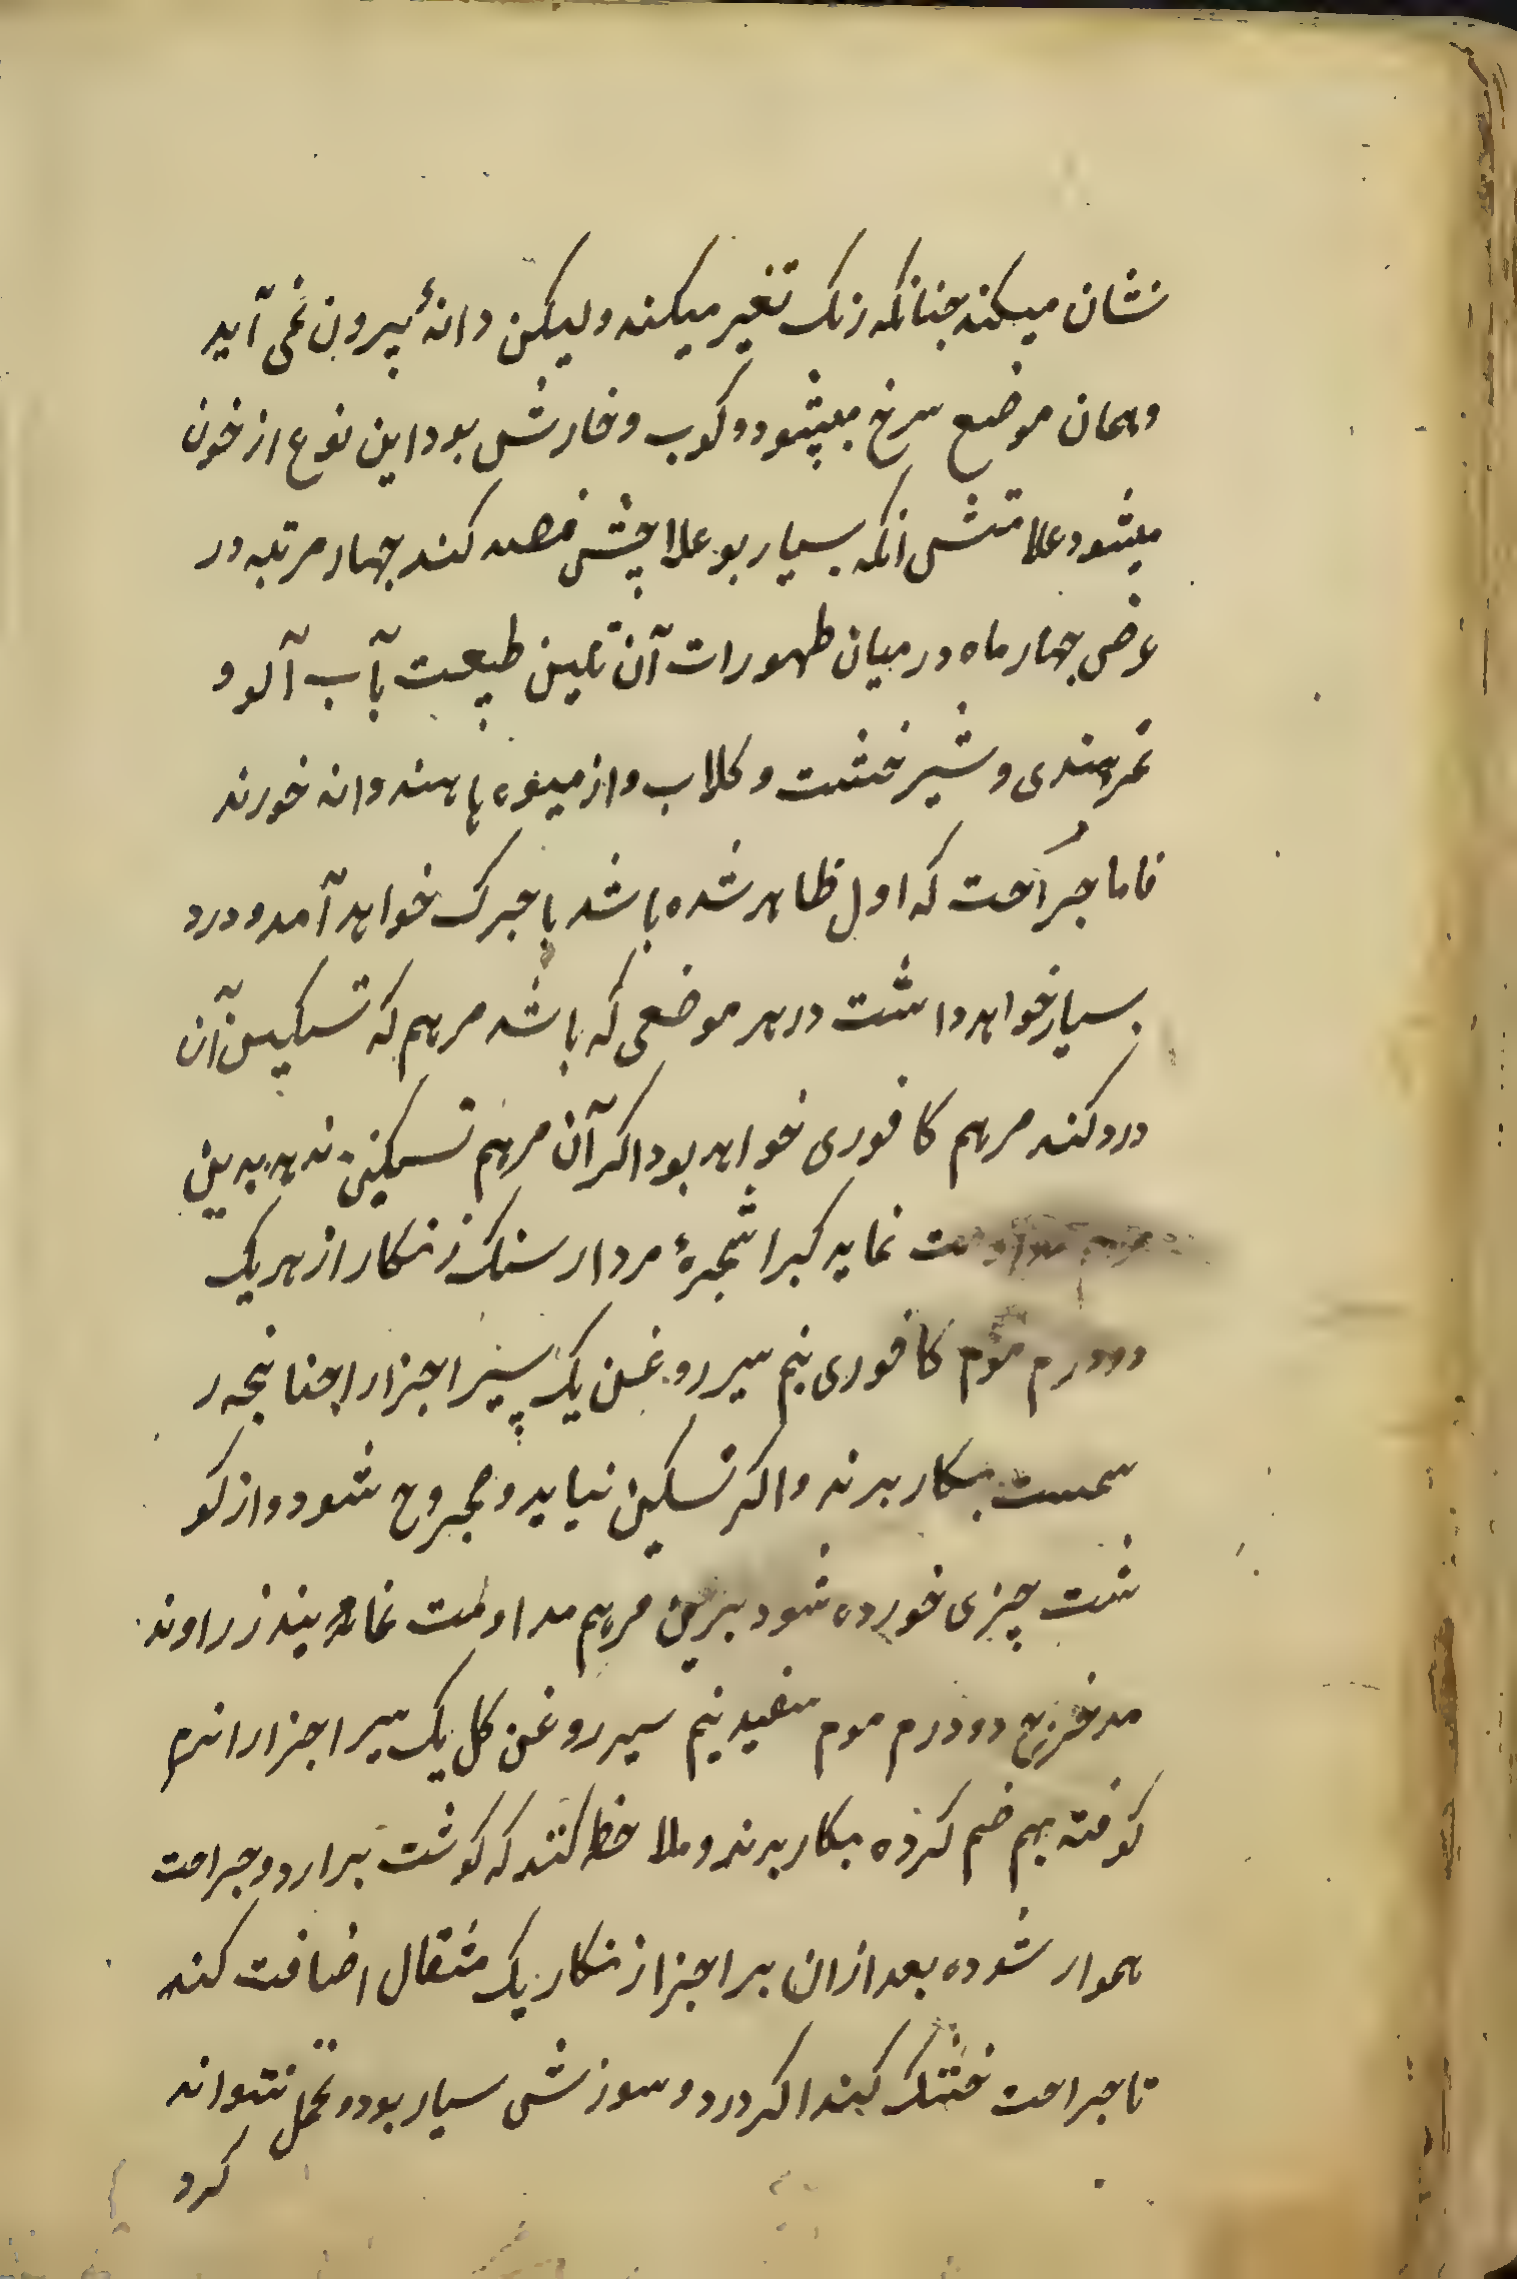 نشان میکند چنانکه زنک تغیر میکند ولیکن دانهٔ بیرون نمی آید
وهمان موضع سرخ میشود و کوب و خارش بود این نوع از خون
میشود علامتش انکه بسیار بو علاجش فصد کند چهار مرتبه در
عرض چهار ماه در میان ظهورات آن تلین طبیعت بآب آلو و
تمرهندی و شیرخشت و کلاب و از میوه ها هندوانه خورند
فاما جراحت که اول ظاهر شده باشد با چرک خواهد آمد و درد
بسیار خواهد داشت در هر موضعی که باشد مرهم که تسکین آن
درد کند مرهم کافوری خواهد بود اکر آن مرهم تسکین ندهد بدین
مرهم مداومت نماید کبرا شجرهٔ مردارسنک زنکار از هر یک
دودرم موم کافوری نیم سیر روغن یک سیر اجزا را چنانچه ر
سمست بکار برند و اکر تسکین نیابد و مجروح شود و از کو
شت چیزی خورده شود برین مرهم مداومت نمایند زراوند
مدحرج دودرم موم سفید نیم سیر روغن کل یک سیر اجزا را نرم
کوفته بهم ضم کرده بکار برند و ملاحظه کنند که کوشت برارد و جراحت
هموار شوده بعد ازان بر اجزا زنکار یک مثقال اضافت کند
تا جراحت خشک کند اکر درد و سوزش بسیار بود و تحمل نتواند
کرد